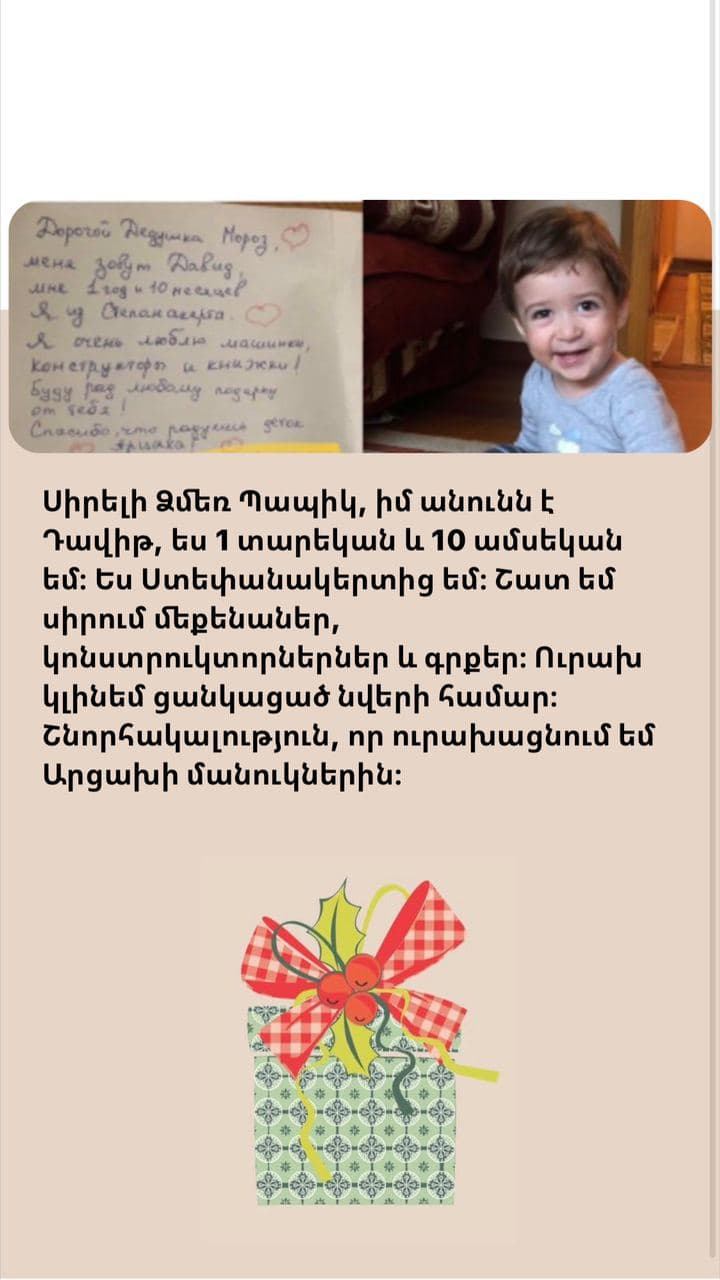 Дорогой Дедушка Мороз,
меня зовут Давид,
мне 1 год и 10 месяцев
Я из Степанакерта.
Я очень люблю машинки,
конструкторы и книжки!
Буду рад любому подарку
от тебя!
Спасибо, что радуешь деток
Арцаха!
Սիրելի Ձմեռ Պապիկ, իմ անունն է
Դավիթ, ես 1 տարեկան և 10 ամսեկան
եմ: Ես Ստեփանակերտից եմ: Շատ եմ
սիրում մեքենաներ,
կոնստրուկտորներներ և գրքեր: Ուրախ
կլինեմ ցանկացած նվերի համար:
Շնորհակալություն, որ ուրախացնում եմ
Արցախի մանուկներին: